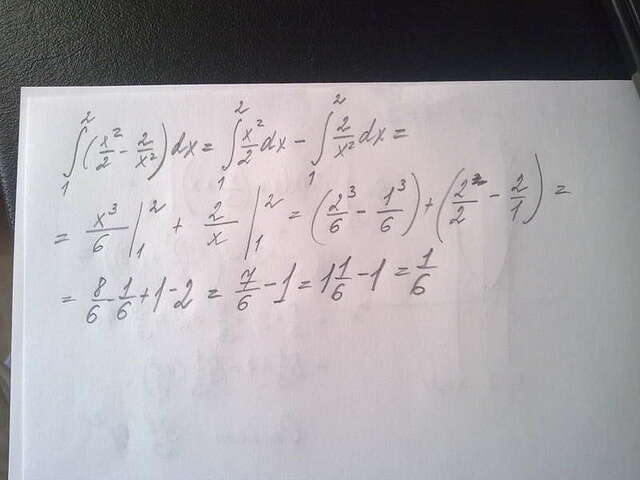 ∫₁² (x²/2 - 2/x²) dx = ∫₁² x²/2 dx - ∫₁² 2/x² dx =
= x³/6 |₁² + 2/x |₁² = (2³/6 - 1³/6) + (2/2 - 2/1) =
= 8/6 - 1/6 + 1 - 2 = 7/6 - 1 = 1 1/6 - 1 = 1/6